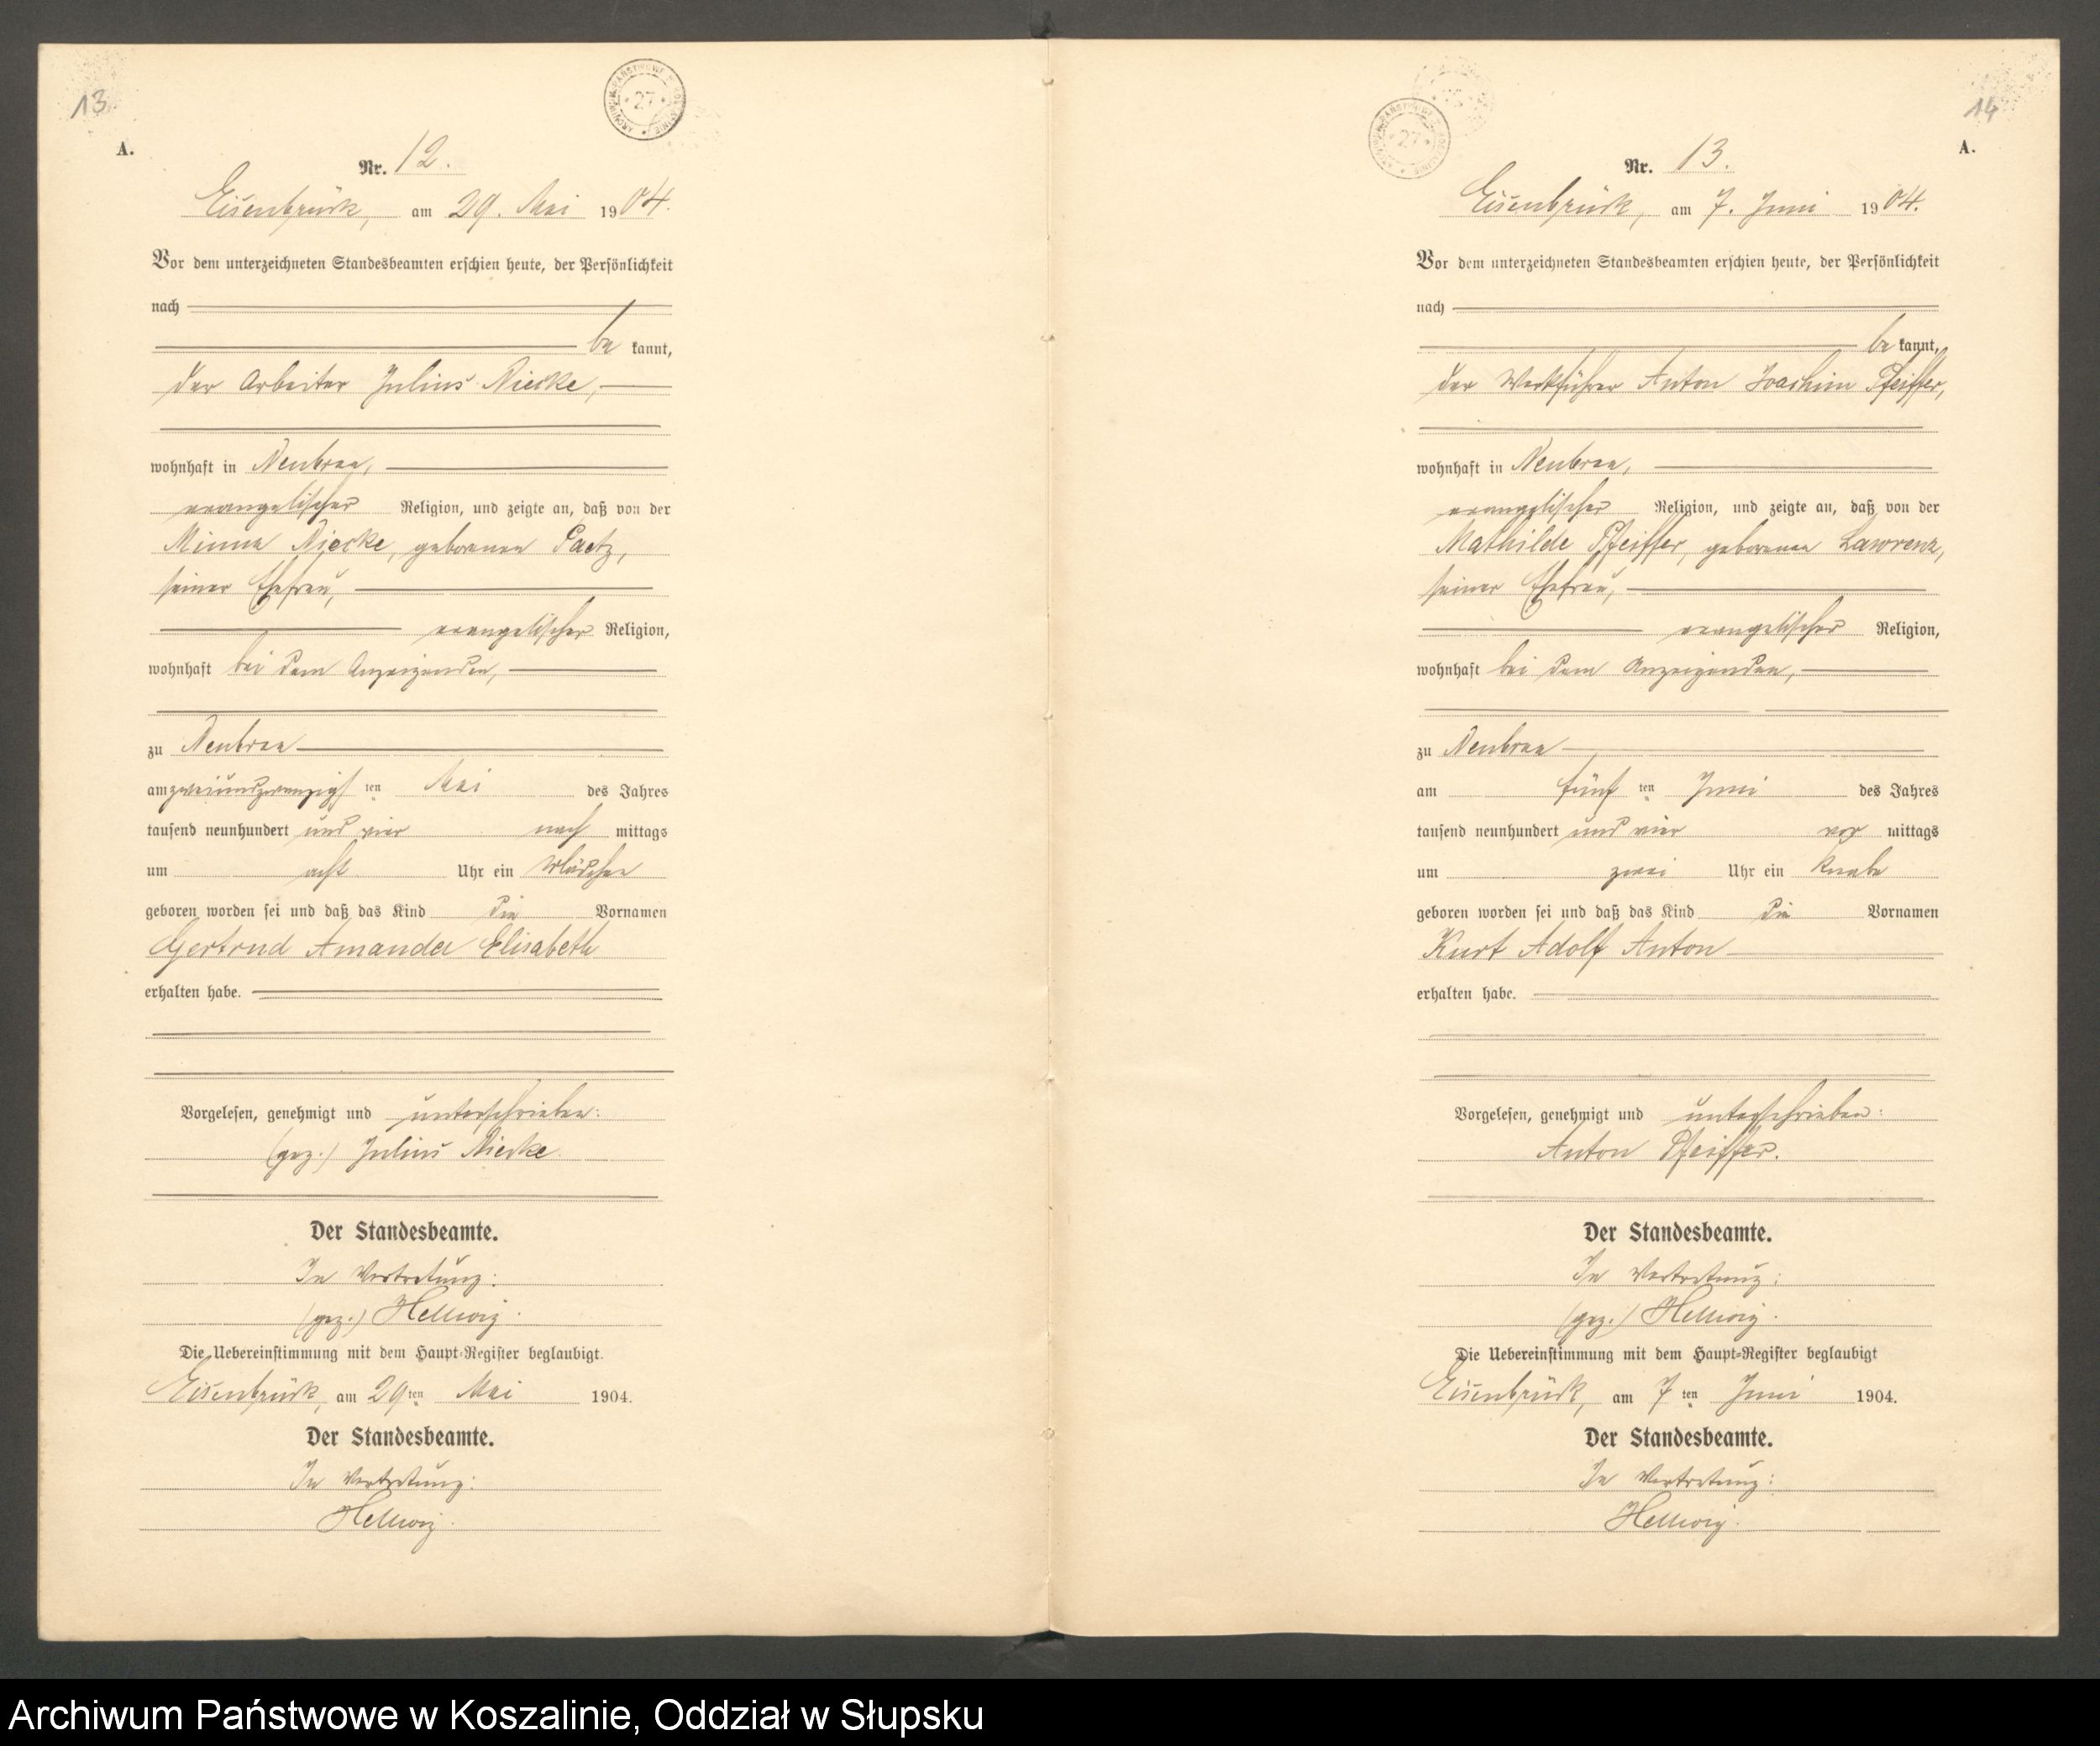 13
A.
Nr. 12.
Eisenbrück, am 29. Mai 1904.
Vor dem unterzeichneten Standesbeamten erschien heute, der Persönlichkeit
nach
be kannt,
der Arbeiter Julius Niecke,
wohnhaft in Neubraa,
evangelischer Religion, und zeigte an, daß von der
Minna Niecke, geborenen Paetz,
seiner Ehefrau,
evangelischer Religion,
wohnhaft bei dem Anzeigenden,
zu Neubraa
am zweiundzwanzigsten Mai des Jahres
tausend neunhundert und vier nach mittags
um acht Uhr ein Mädchen
geboren worden sei und daß das Kind die Vornamen
Gertrud Amanda Elisabeth
erhalten habe.
Vorgelesen, genehmigt und unterschrieben:
(gez.) Julius Niecke.
Der Standesbeamte.
In Vertretung:
(gez.) Hellwig.
Die Uebereinstimmung mit dem Haupt-Register beglaubigt.
Eisenbrück, am 29ten Mai 1904.
Der Standesbeamte.
In Vertretung:
Hellwig.
14
A.
Nr. 13.
Eisenbrück, am 7. Juni 1904.
Vor dem unterzeichneten Standesbeamten erschien heute, der Persönlichkeit
nach
be kannt,
der Werkführer Anton Joachim Pfeiffer,
wohnhaft in Neubraa,
evangelischer Religion, und zeigte an, daß von der
Mathilde Pfeiffer, geborenen Lawrenz,
seiner Ehefrau,
evangelischer Religion,
wohnhaft bei dem Anzeigenden,
zu Neubraa
am fünf ten Juni des Jahres
tausend neunhundert und vier vor mittags
um zwei Uhr ein Knabe
geboren worden sei und daß das Kind die Vornamen
Kurt Adolf Anton
erhalten habe.
Vorgelesen, genehmigt und unterschrieben:
Anton Pfeiffer.
Der Standesbeamte.
In Vertretung:
(gez.) Hellwig.
Die Uebereinstimmung mit dem Haupt-Register beglaubigt
Eisenbrück, am 7ten Juni 1904.
Der Standesbeamte.
In Vertretung:
Hellwig.
Archiwum Państwowe w Koszalinie, Oddział w Słupsku